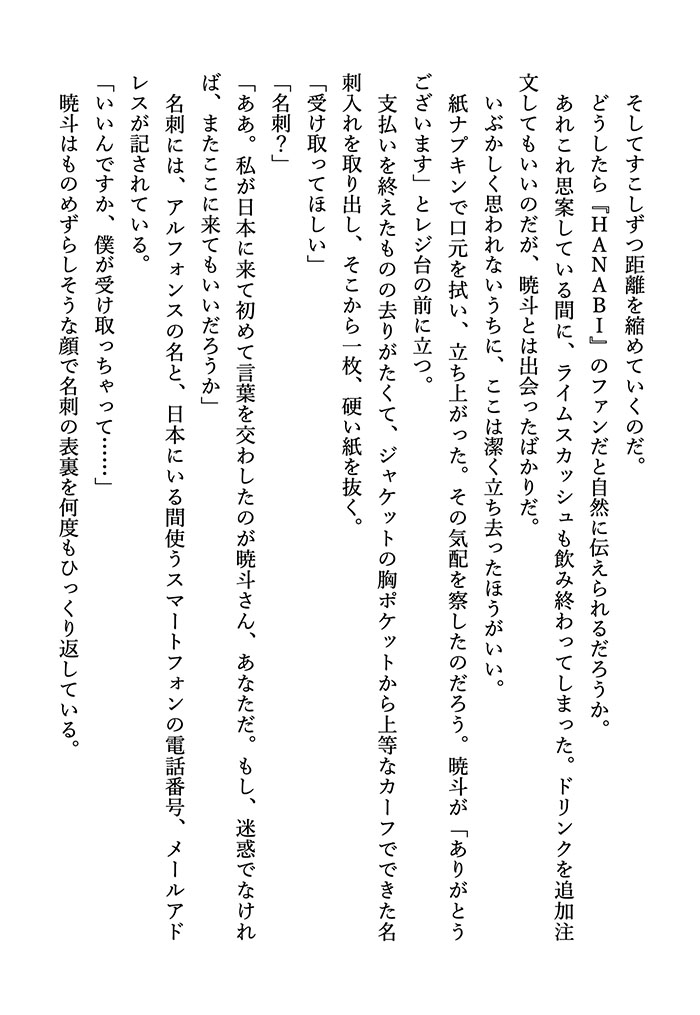 そしてすこしずつ距離を縮めていくのだ。
どうしたら『HANABI』のファンだと自然に伝えられるだろうか。
あれこれ思案している間に、ライムスカッシュも飲み終わってしまった。ドリンクを追加注
文してもいいのだが、暁斗とは出会ったばかりだ。
いぶかしく思われないうちに、ここは潔く立ち去ったほうがいい。
紙ナプキンで口元を拭い、立ち上がった。その気配を察したのだろう。暁斗が「ありがとう
ございます」とレジ台の前に立つ。
支払いを終えたものの去りがたくて、ジャケットの胸ポケットから上等なカーフでできた名
刺入れを取り出し、そこから一枚、硬い紙を抜く。
「受け取ってほしい」
「名刺？」
「ああ。私が日本に来て初めて言葉を交わしたのが暁斗さん、あなただ。もし、迷惑でなけれ
ば、またここに来てもいいだろうか」
名刺には、アルフォンスの名と、日本にいる間使うスマートフォンの電話番号、メールアド
レスが記されている。
「いいんですか、僕が受け取っちゃって……」
暁斗はものめずらしそうな顔で名刺の表裏を何度もひっくり返している。